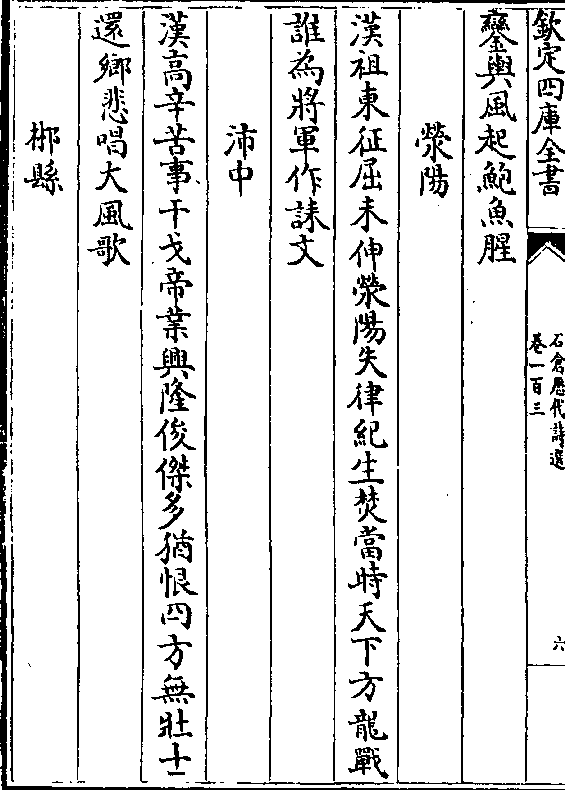 欽定四庫全書
石倉歷代詩選
卷一百三
六
鑾輿風起鮑魚腥
滎陽
漢祖東征屈未伸滎陽失律紀生焚當時天下方龍戰
誰為將軍作誄文
沛中
漢高辛苦事干戈帝業興隆俊傑多猶恨四方無壯士
還鄉悲唱大風歌
郴縣